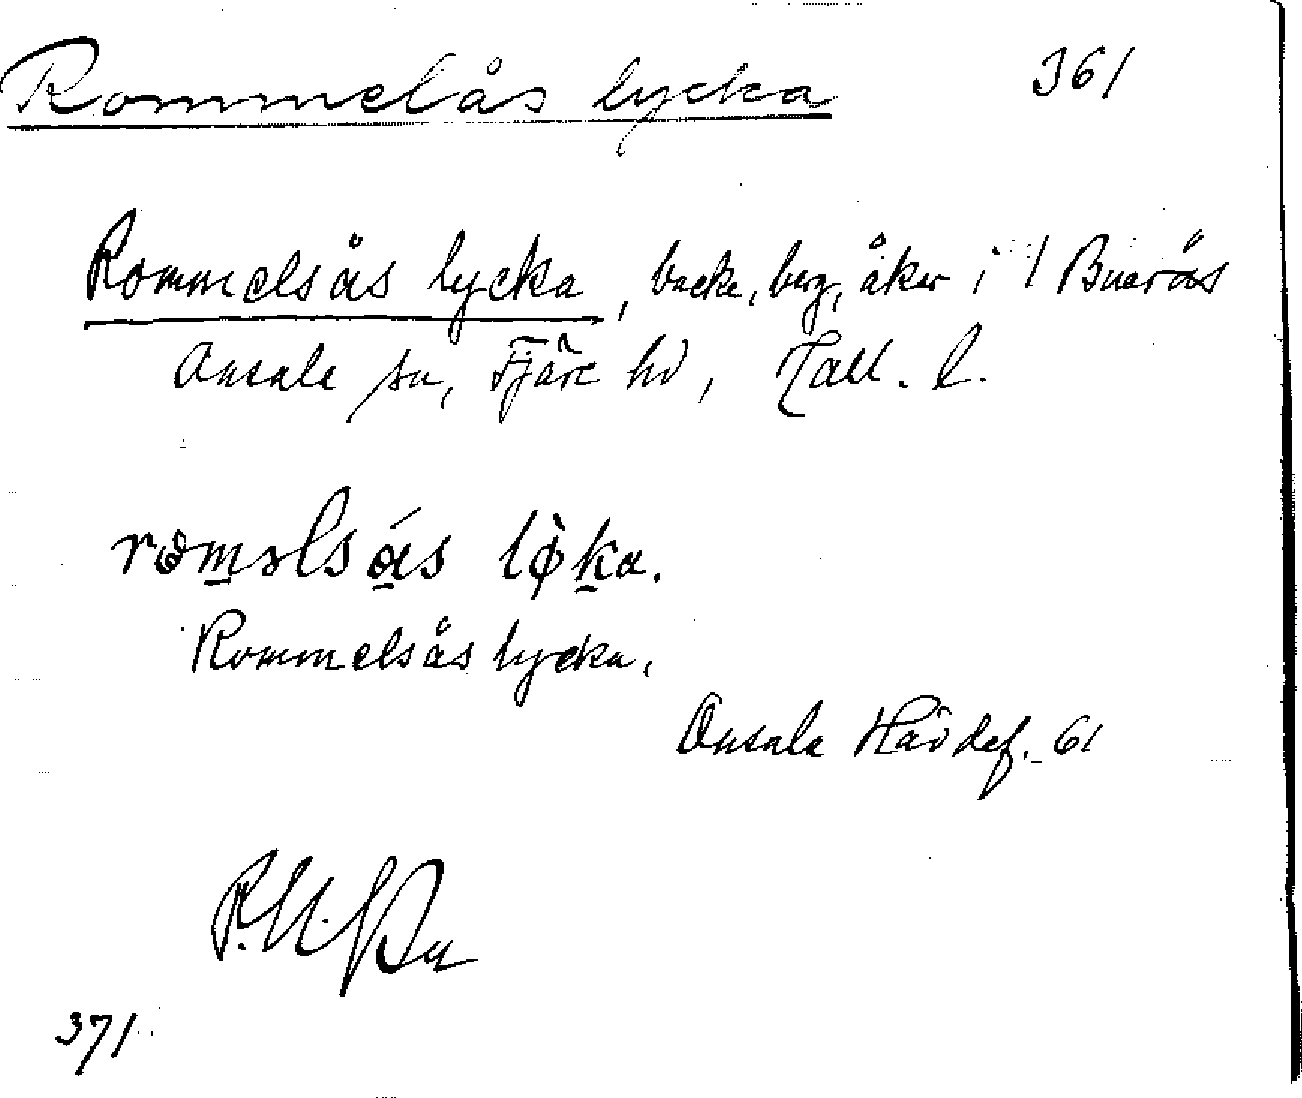 Rommelås lycka 361
Rommelsås lycka, backe, berg, åker i 1 Buerås
Onsala sn, Fjäre hd, Hall. l.
romǝlsås lø̀ka.
Rommelsås lycka.
Onsala Hävdef. 61
371